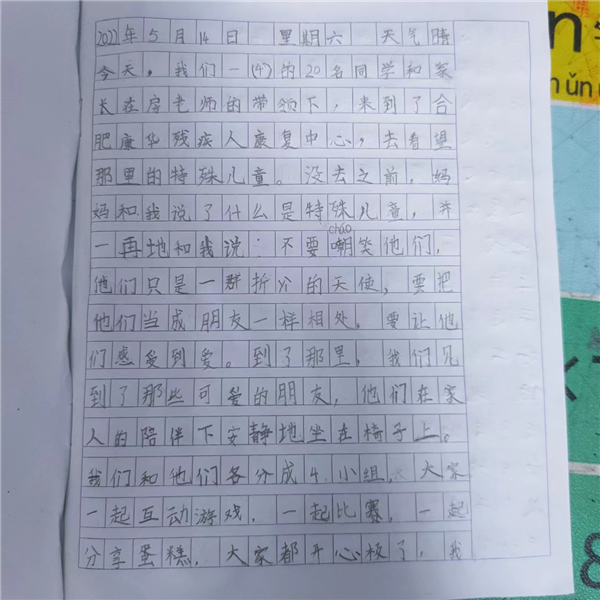 2022年5月14日 星期六 天气晴
今天，我们一(4)的20名同学和家
长在房老师的带领下，来到了合
肥康华残疾人康复中心，去看望
那里的特殊儿童。没去之前，妈
妈和我说了什么是特殊儿童，并
cháo
一再地和我说：不要嘲笑他们，
他们只是一群折分的天使，要把
他们当成朋友一样相处。要让他
们感受到爱。到了那里，我们见
到了那些可爱的朋友，他们在家
人的陪伴下安静地坐在椅子上。
我们和他们各分成4小组，大家
一起互动游戏，一起比赛，一起
分享蛋糕，大家都开心极了，我
n
ǔn
8